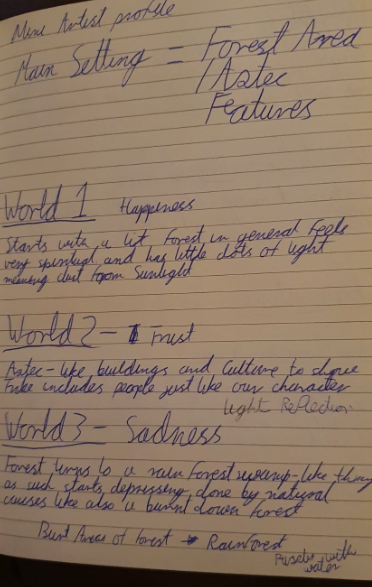 Mini Artist profile
Main Setting = Forest Area
/ Aztec
Features
World 1 Happiness
Starts with a lit forest in general feels
very spiritual and has little dots of light
meaning dust from Sunlight
World 2 - Trust
Aztec-like buildings and culture to
includes people just like our character
Light Reflection
World 3 - Sadness
Forest turns to a rain forest swamp-like thing
as well starts depressing done by natural
causes like also a burnt down forest
Burnt Areas of forest → Rainforest
with
water